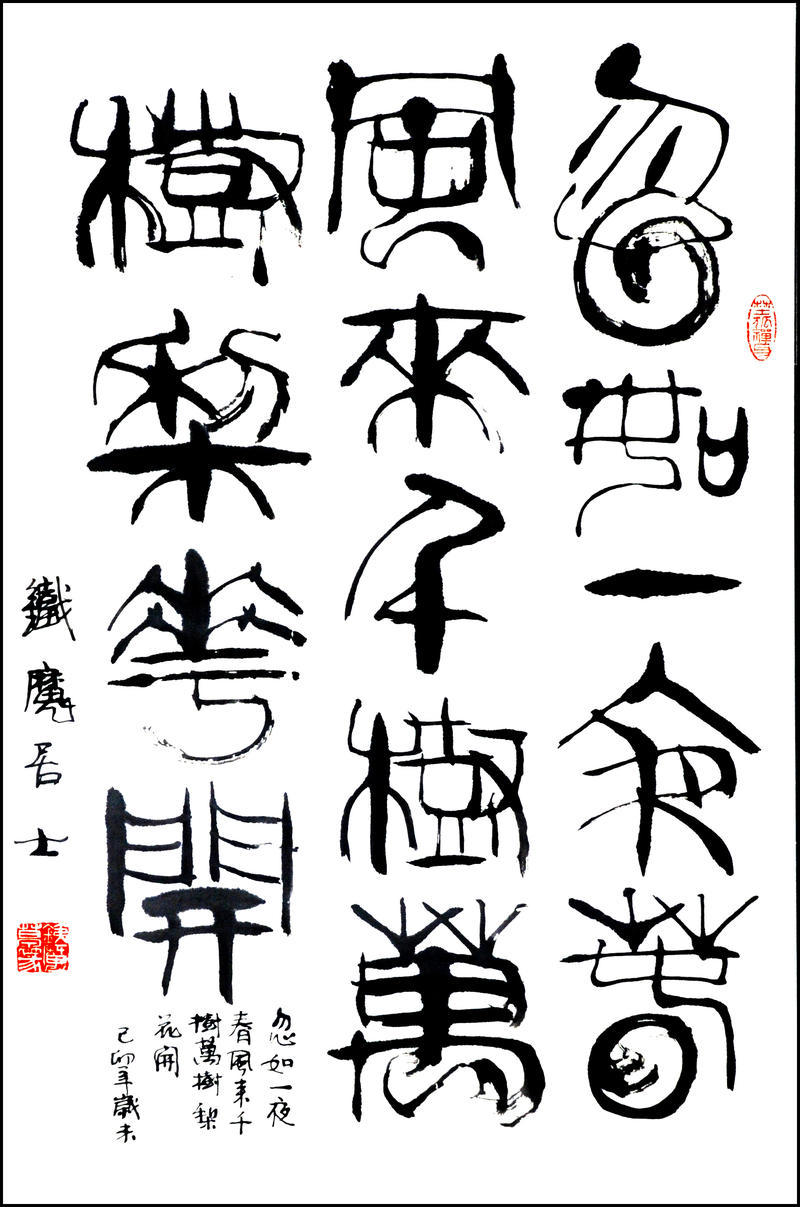 忽如一夜春
風來千樹萬
樹梨花開
忽如一夜
春風來千
樹萬樹梨
花開
己卯年歲末
鐵魔居士